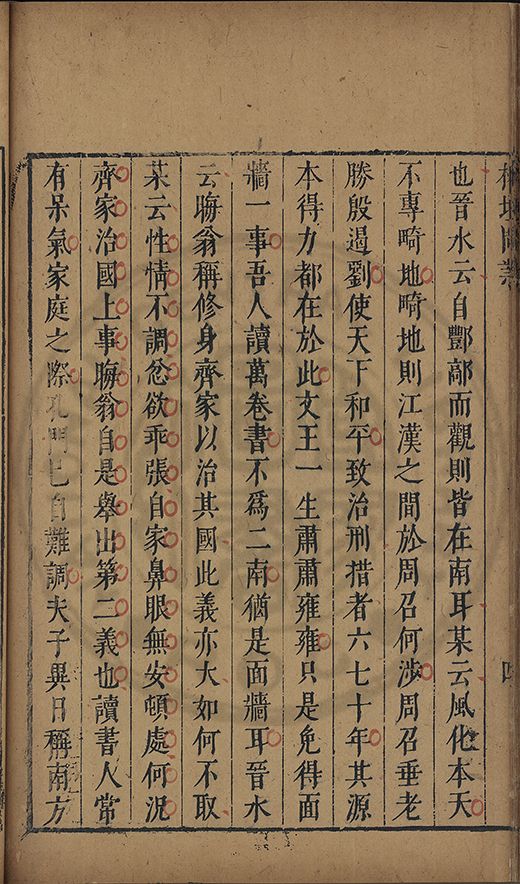 也晉水云自酆鄗而觀則皆在南耳某云風化本天
不專畸地畸地則江漢之間於周召何涉周召垂老
勝殷遏劉使天下和平致治刑措者六七十年其源
本得力都在於此文王一生肅肅雍雍只是免得面
牆一事吾人讀萬卷書不爲二南猶是面牆耳晉水
云晦翁稱修身齊家以治其國此義亦大如何不取
某云性情不調忿欲乖張自家鼻眼無安頓處何況
齊家治國上事晦翁自是舉出第二義也讀書人常
有呆氣家庭之際孔門已自難調夫子異日稱南方